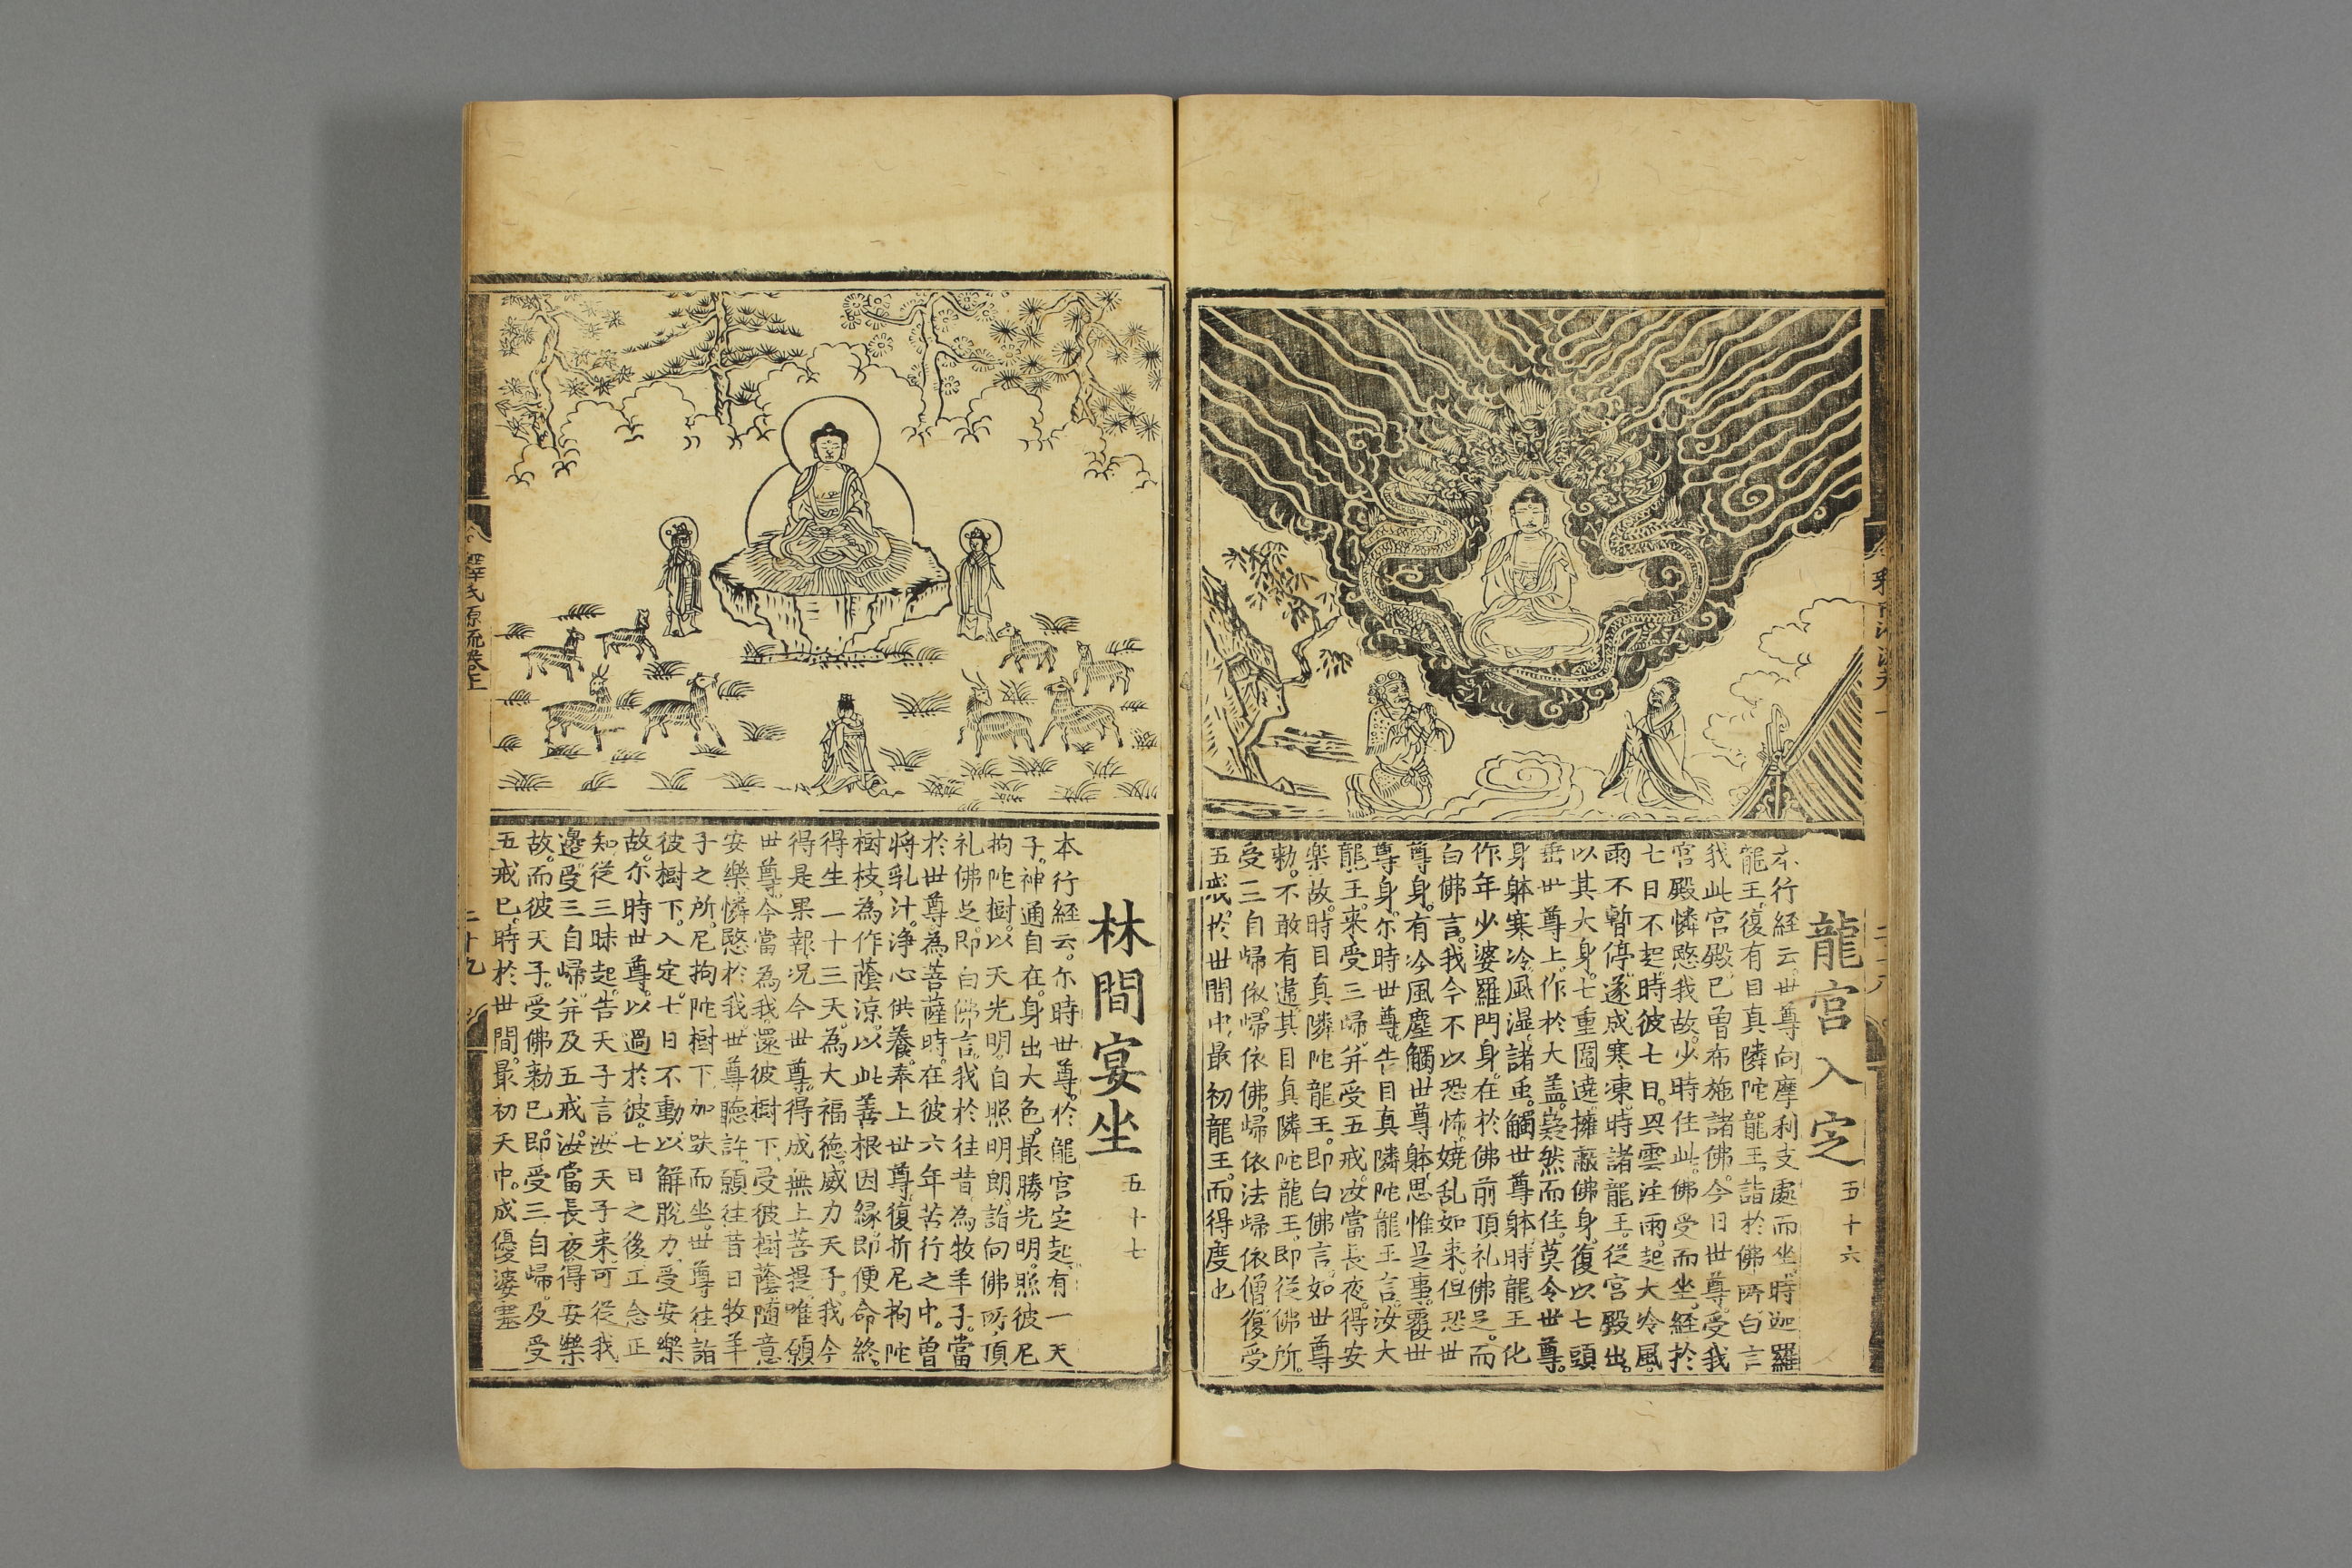 龍宮入定 五十六
本行経云。世尊向摩利支處而坐。時迦羅
龍王。復有目真隣陀龍王。詣於佛所。白言
我此宮殿。已曾布施諸佛。今日世尊。受我
宮殿。憐愍我故。少時住此。佛受而坐。経於
七日不起。時彼七日。興雲注雨。起大冷風。
雨不暫停。遂成寒凍。時諸龍王。從宮殿出。
以其大身。七重圍遶。擁蔽佛身。復以七頭
垂世尊上。作於大盖。嶷然而住。莫令世尊。
身躰寒冷。風濕諸䖝。觸世尊躰。時龍王化
作年少婆羅門身。在於佛前。頂礼佛足。而
白佛言。我今不以恐怖。嬈乱如来。但恐世
尊身。有冷風塵觸。世尊躰。思惟是事。覆世
尊身。尓時世尊。告目真隣陀龍王言。汝大
龍王。来受三歸。并受五戒。汝當長夜。得安
楽故。時目真隣陀龍王。即白佛言。如世尊
勑。不敢有違。其目真隣陀龍王。即從佛所。
受三自歸依。歸依佛。歸依法歸依僧。復受
五戒。於世間中。最初龍王。而得度也
林間宴坐 五十七
本行経云。尓時世尊。於龍宮定起。有一天
子。神通自在。身出大色。最勝光明。照彼尼
拘陀樹。以天光明。自照明朗。詣向佛所。頂
礼佛足。即白佛言。我於往昔。為牧羊子。當
於世尊。為菩薩時。在彼六年苦行之中。曽
將乳汁。浄心供養。奉上世尊。復折尼拘陀
樹枝。為作蔭涼。以此善根因縁。即便命終。
得生一十三天。為大福德。威力天子。我今
得是果報。况今世尊。得成無上菩提。唯願
世尊。今當為我。還彼樹下。受彼樹蔭。隨意
安樂。憐愍於我。世尊聽許。願往昔日牧羊
子之所。尼拘陀樹下。加趺而坐。世尊往詣
彼樹下。入定七日不動。以解脫力。受安樂
故。尓時世尊。以過於彼。七日之後。正念正
知。從三昧起。告天子言。汝天子来。可從我
邊。受三自歸。并及五戒。汝當長夜。得安樂
故。而彼天子。受佛勑已。即受三自歸。及受
五戒已。時於世間。最初天中。成優婆塞
釋氏源流卷上
二十九